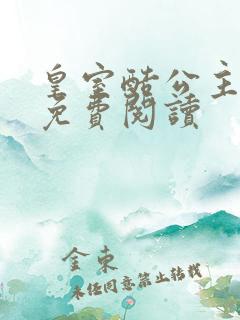 皇室酷公主
免費閱讀
金東
未任同意禁止转载